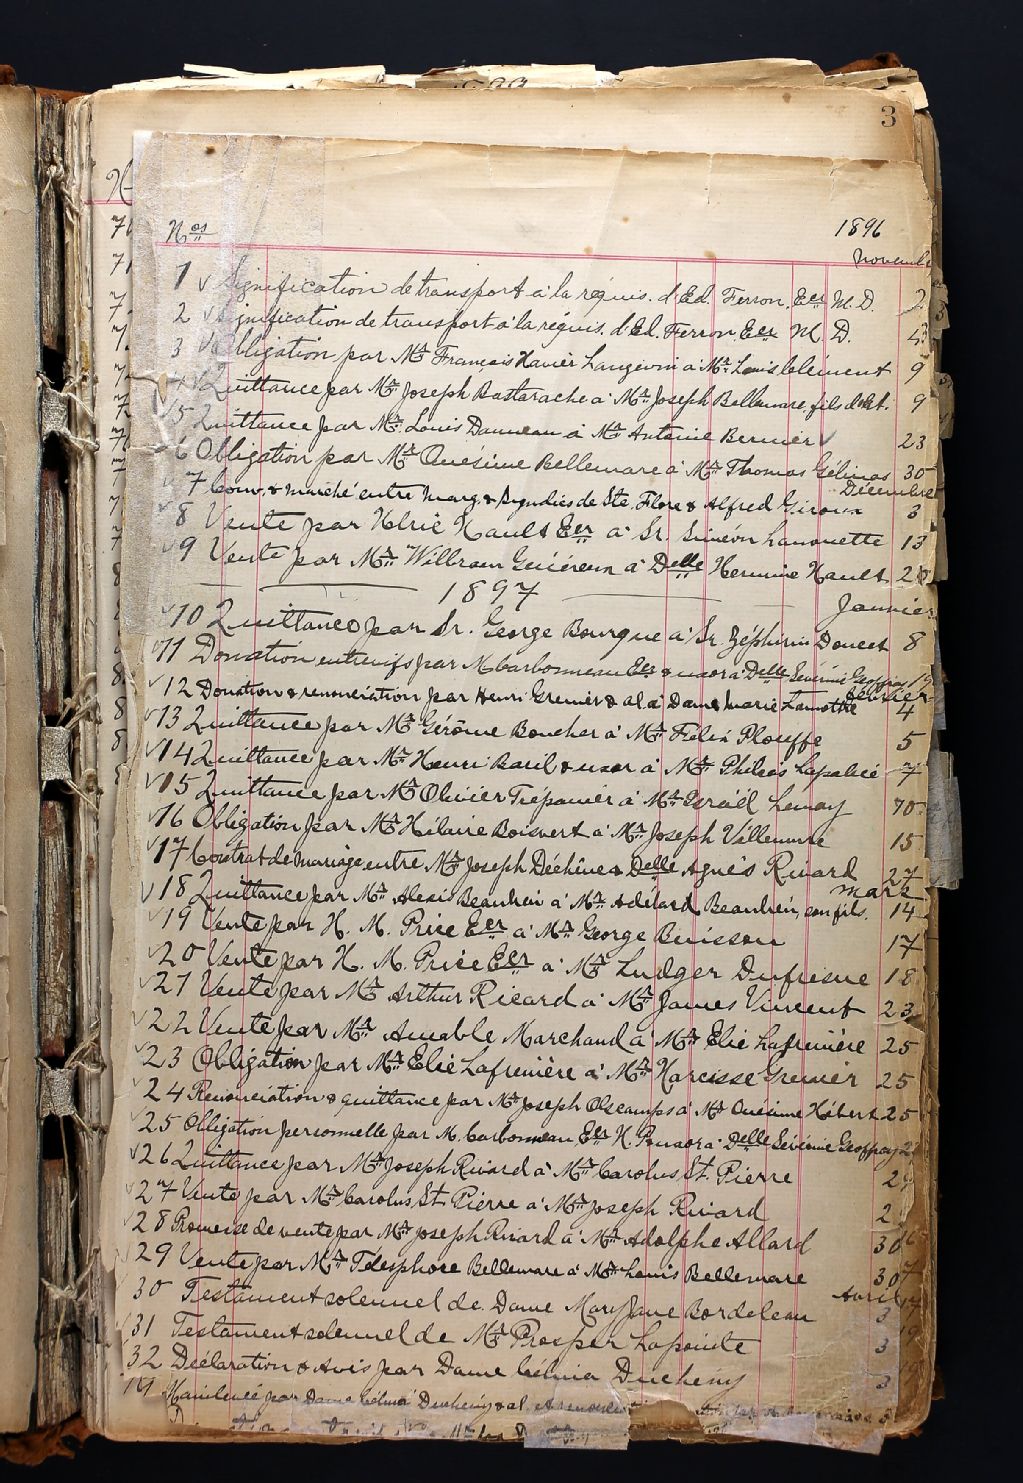 3
Nos 1896
Novembre
1 Signification de transport à la réquis. d'Ed. Ferron, Ecr M.D. 2
2 Signification de transport à la réquis. d'Ed. Ferron Ecr M.D.
3 Obligation par Mr François Xavier Langevin à Mr Louis Clément 9
4 Quittance par Mr Joseph Bastarache à Mr Joseph Bellemare, fils d'Ant. 9
5 Quittance par Mr Louis Dauneau à Mr Antoine Bernier 23
6 Obligation par Mr Onésime Bellemare à Mr Thomas Gélinas 30
Décembre
7 Conv. & marché entre Marg. & Syndics de Ste. Flore & Alfred Giroux 3
8 Vente par Ulric Hault Ecr à Sr. Siméon Lanouette 13
9 Vente par Mr William Généreux à Delle Hermine Hault
1897
Janvier
10 Quittance par Sr. George Bourque à Sr Zéphirin Doucet 8
11 Donation entrevifs par M. Carbonneau Ecr & uxor à Delle Sévérine Geoffroy 19
Février
12 Donation & renonciation par Henri Grenier & al à Dame Marie Lamothe 4
13 Quittance par Mr Gérôme Boucher à Mr Félix Plouffe 5
14 Quittance par Mr Henri Baril & uxor à Mr Philéas Lapalice 7
15 Quittance par Mr Olivier Trépanier à Mr Israël Lemay 10
16 Obligation par Mr Hilaire Boisvert à Mr Joseph Villemure 15
17 Contrat de mariage entre Mr Joseph Déchêne & Delle Agnès Rivard 27
Mars
18 Quittance par Mr Alexis Beaudrein à Mr Adélard Beaudrein, son fils. 14
19 Vente par H. M. Price Ecr à Mr George Buisson 17
20 Vente par H. M. Price Ecr à Mr Ludger Dufresne 18
21 Vente par Mr Arthur Ricard à Mr James Vincent 23
22 Vente par Mr Amable Marchand à Mr Elie Lafrenière 25
23 Obligation par Mr Elie Lafrenière à Mr Narcisse Grenier 25
24 Renonciation & quittance par Mr Joseph Olscamps à Mr Onésime Hébert 25
25 Obligation personnelle par M. Carbonneau Ecr N.P. uxor à Delle Sévérine Geoffroy
26 Quittance par Mr Joseph Rivard à Mr Carolus St. Pierre 29
27 Vente par Mr Carolus St. Pierre à Mr Joseph Rivard
28 Promesse de vente par Mr Joseph Rivard à Mr Adolphe Allard 30
29 Vente par Mr Télesphore Bellemare à Mr Louis Bellemare 30
Avril
30 Testament solennel de Dame Mary Jane Bordeleau 3
31 Testament solennel de Mr Prosper Lapointe 3
32 Déclaration & Avis par Dame Célina Ducheny 3
Mainlevée par Dame Célina Ducheny & al et renonciation